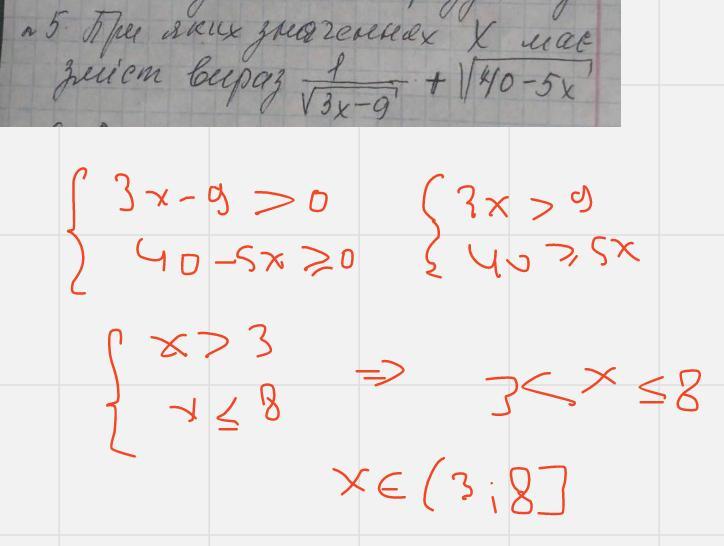 №5. При яких значеннях X має
зміст вираз 1/√(3x-9) + √(40-5x)
{ 3x-9 > 0 { 3x > 9
40-5x ≥ 0 40 ≥ 5x
{ x > 3
x ≤ 8 ⇒ 3 < x ≤ 8
x ∈ (3; 8]